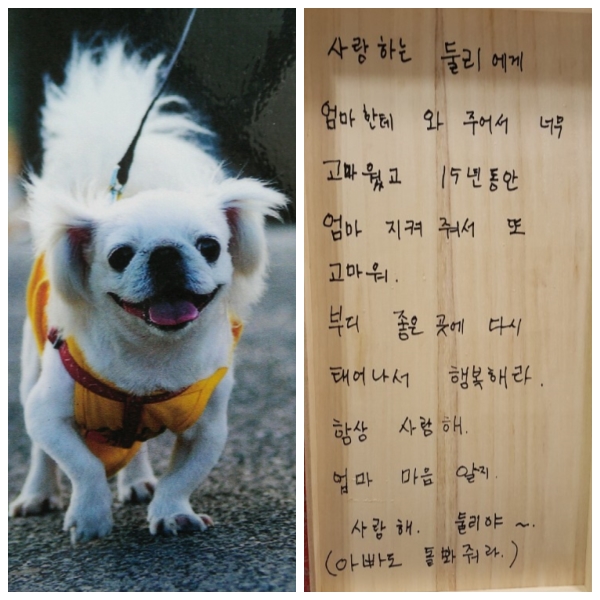 사랑하는 둘리에게
엄마한테 와 주어서 너무
고마웠고 15년동안
엄마 지켜 줘서 또
고마워.
부디 좋은 곳에 다시
태어나서 행복해라.
항상 사랑해.
엄마 마음 알지.
사랑해. 둘리야~.
(아빠도 돌봐줘라.)